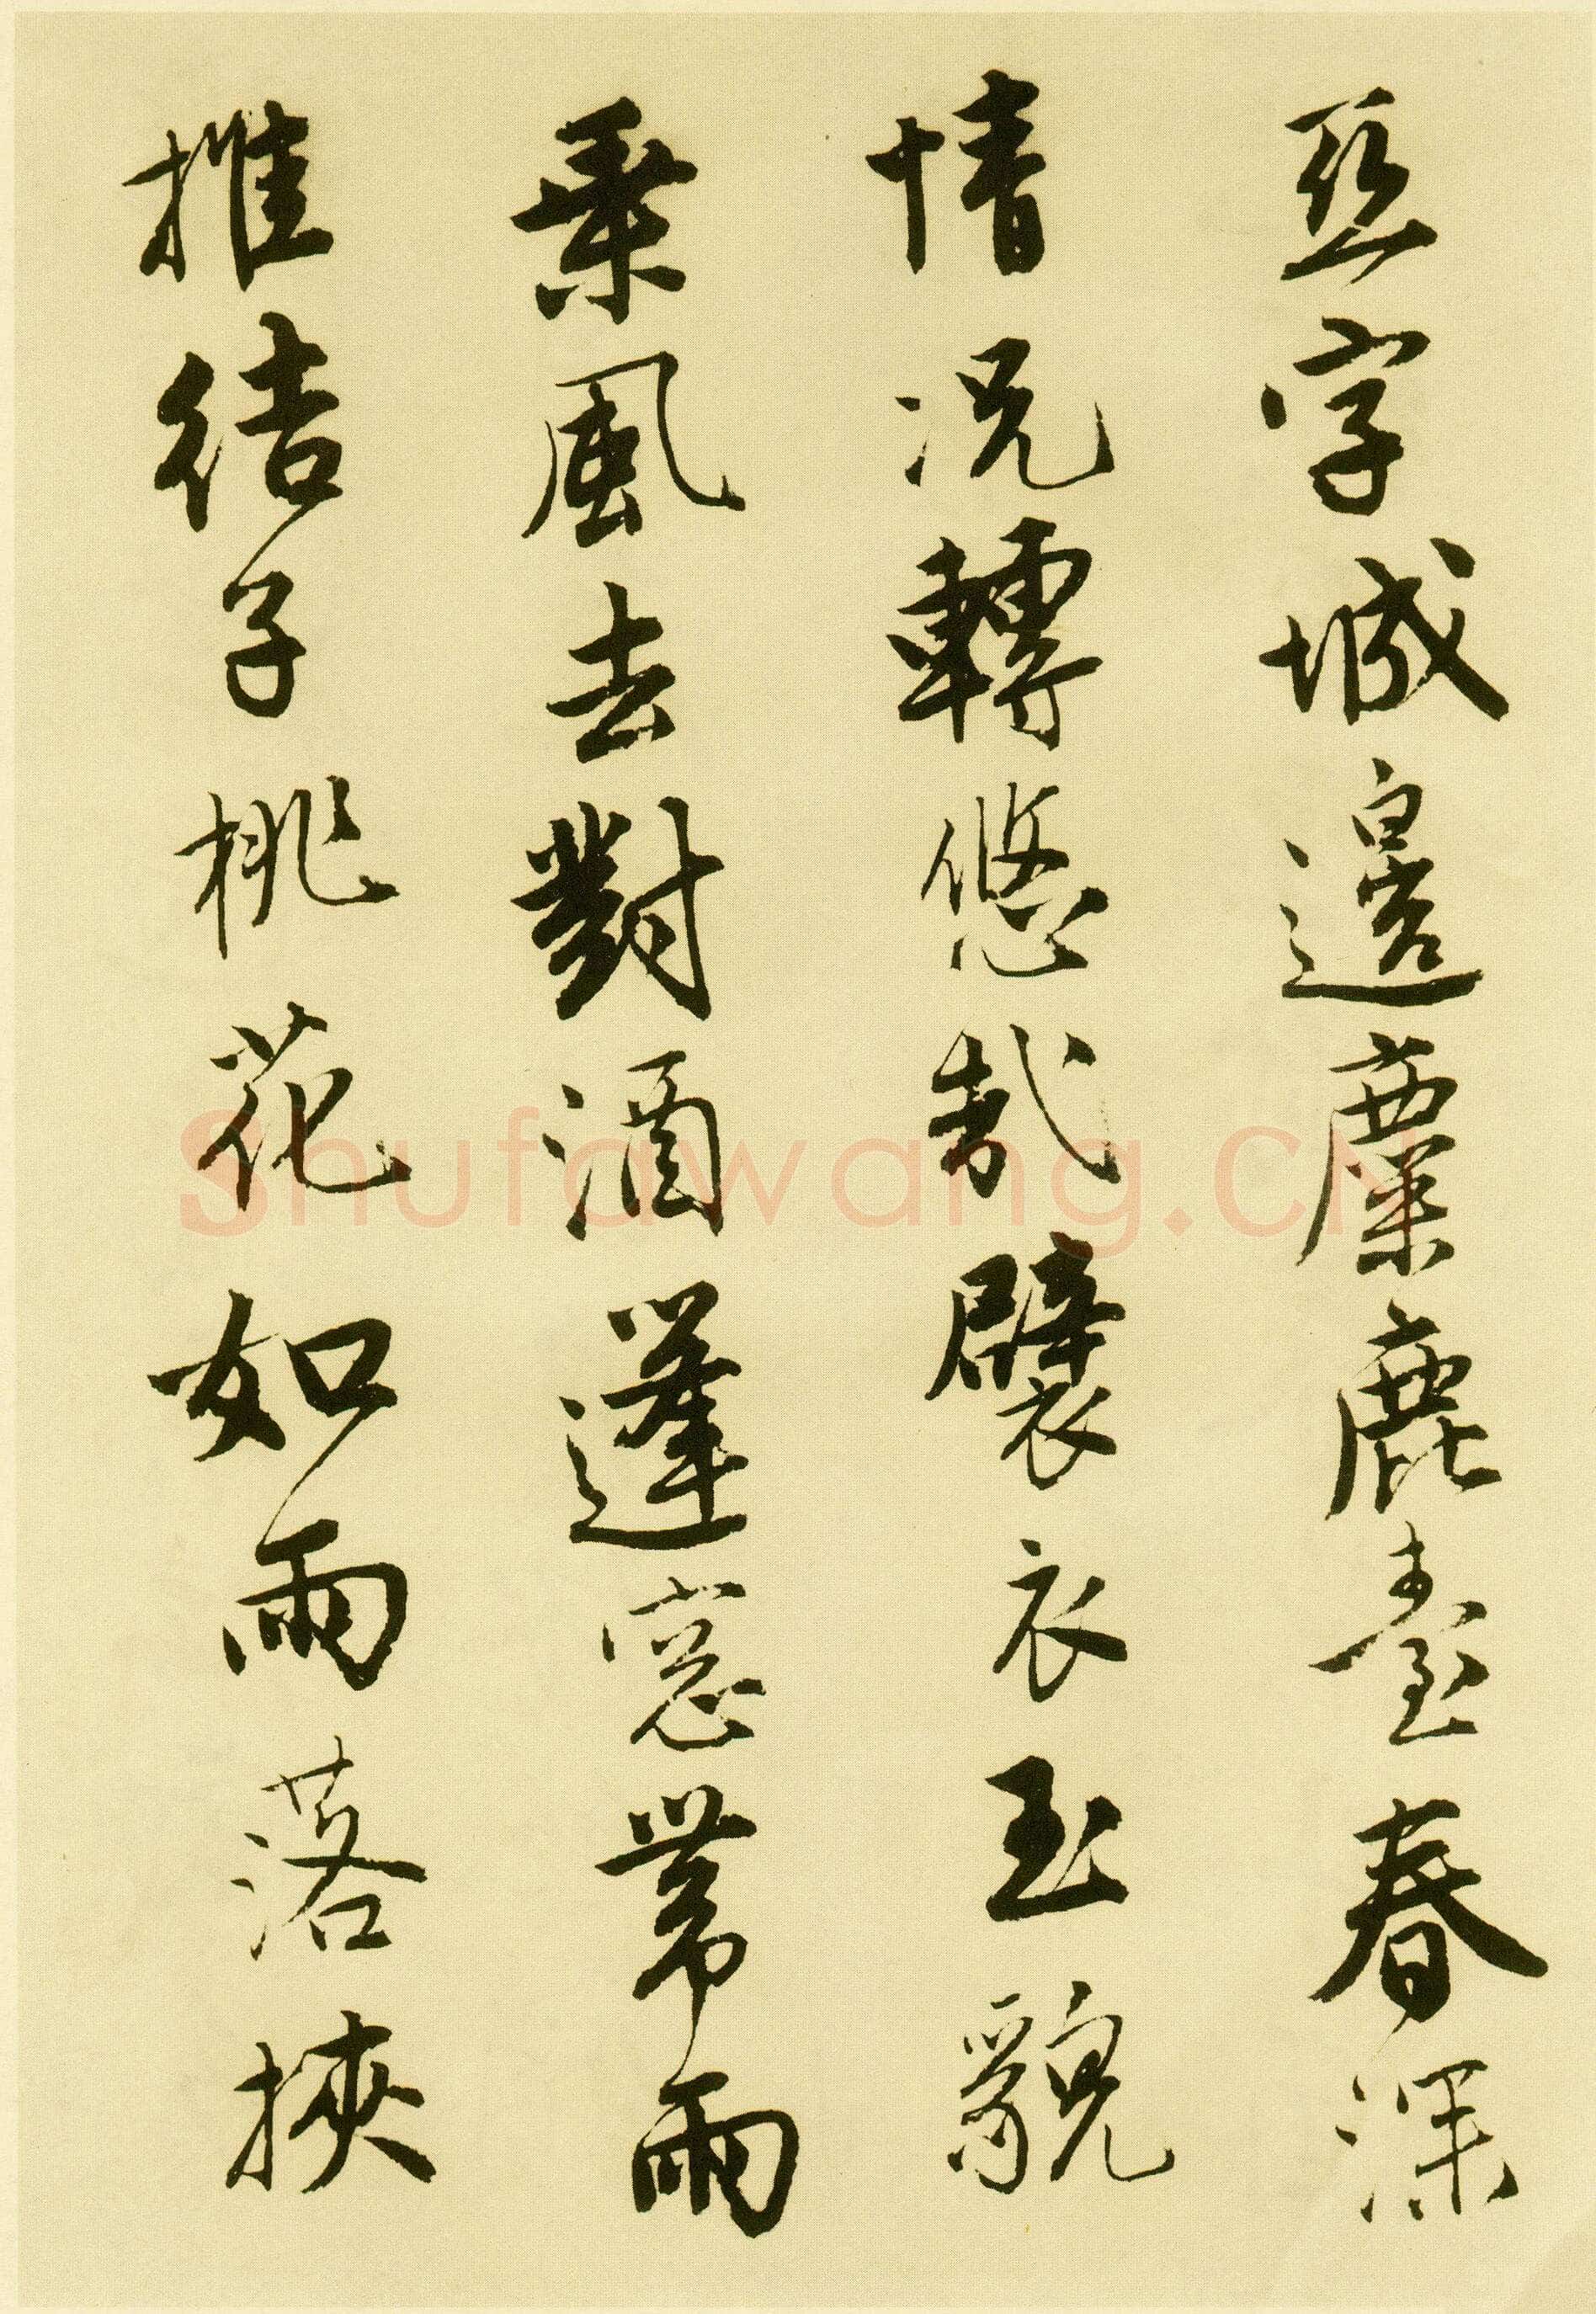 亞字城邊麋鹿臺春深
情況轉悠哉襞衣玉貌
乘風去對酒蓬窓帶雨
推結子桃花如雨落挾
Shufawang.CN